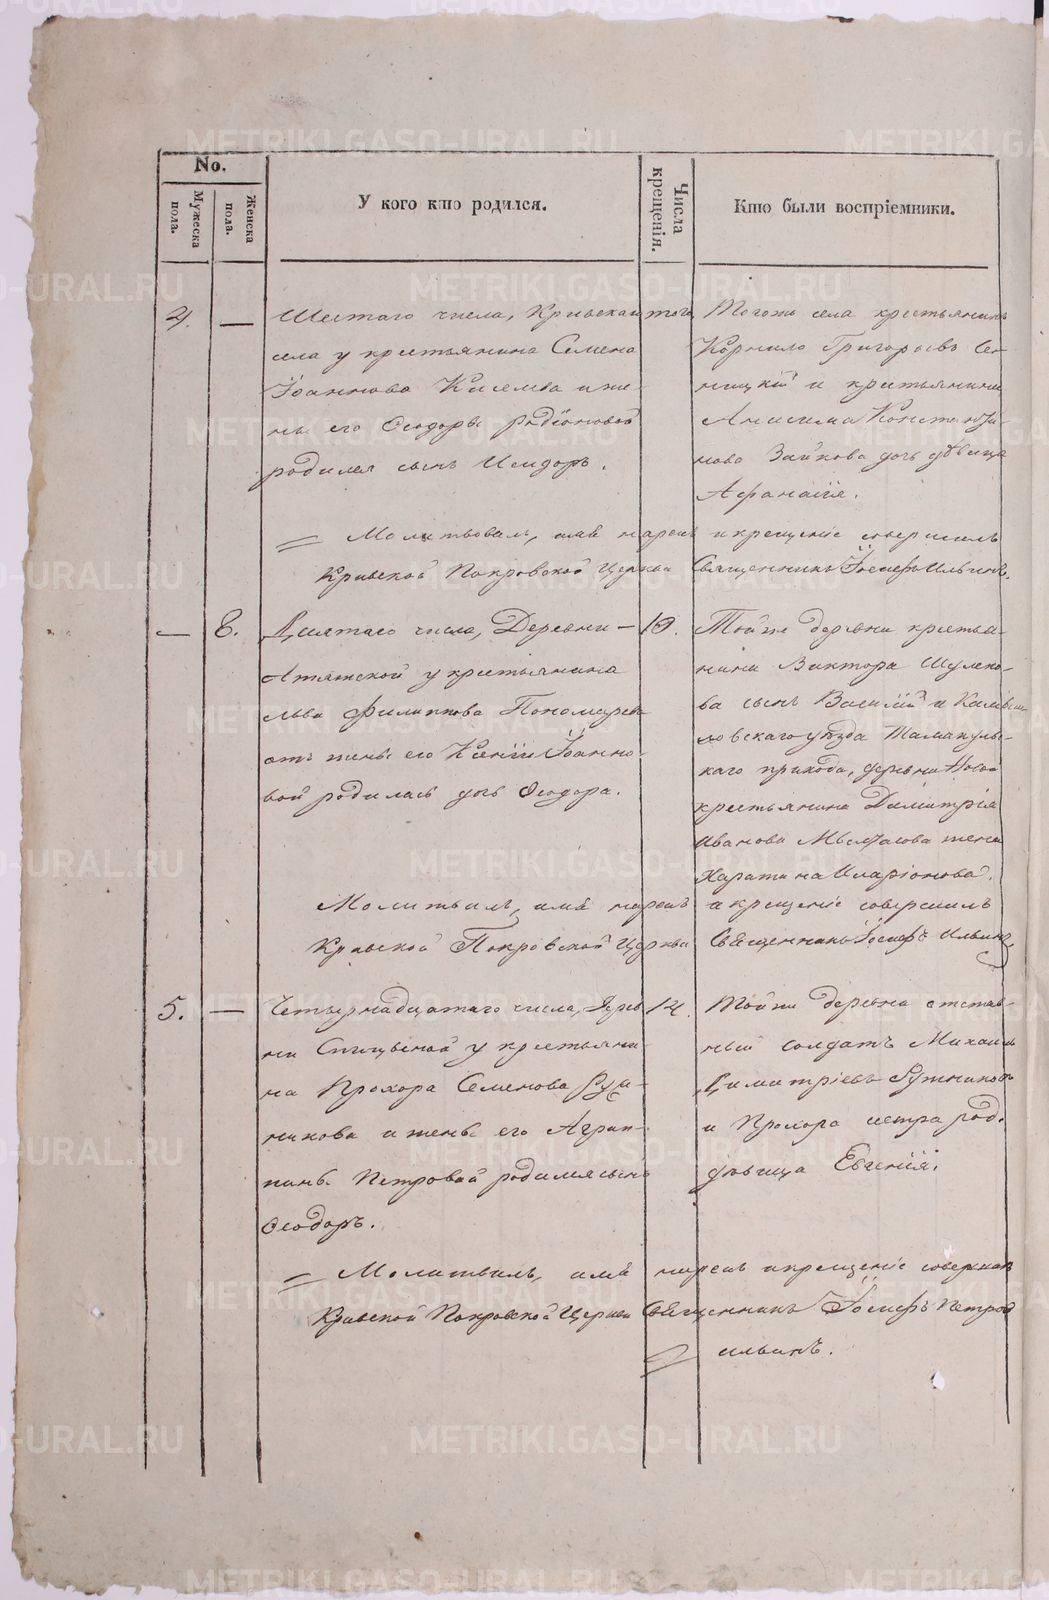 No.
Мужеска пола.
Женска пола.
У кого кто родился.
Числа крещенія.
Кто были воспріемники.
4. — Шестаго числа, Кривскаго того
села у крестьянина Семена
Іоаннова и же-
ны его Ѳеодоры Родіоновой
родился сынъ Исидоръ.
Тогожъ села крестьянинъ
Корнило Григорьевъ
и крестьянина
Анисима Константи-
нова Зайкова дочь дѣвица
Афанасія.
Молитвовалъ, имя нарекъ и крещеніе совершилъ
Кривской Покровской Церкви Священникъ Іосифъ Ильинъ.
— 8. Девятаго числа, Деревни — 10.
у крестьянина
Льва Филиппова Пономарева
отъ жены его Ксеніи Іоанно-
вой родилась дочь Ѳеодора.
Тойже деревни крестья-
нина Виктора Шулепо-
ва сынъ Василій и Камыш-
ловскаго уѣзда Тамакуль-
скаго прихода, деревни
крестьянина Димитрія
Иванова жена
Харатина Иларіонова.
Молитвилъ, имя нарекъ и крещеніе совершилъ
Кривской Покровской Церкви Священникъ Іосифъ Ильинъ
5. — Четырнадцатаго числа, Дерев 14.
ни Спицыной у крестьяни-
на Прохора Семенова
и жены его Агрип-
пины Петровой родился сынъ
Ѳеодоръ.
Тойже деревни отстав-
ный солдатъ Михаилъ
Димитріевъ
и Прохора сестра род.
дѣвица Евгенія.
Молитвилъ, имя нарекъ и крещеніе совершилъ
Кривской Покровской Церкви Священникъ Іосифъ Петров
Ильинъ.